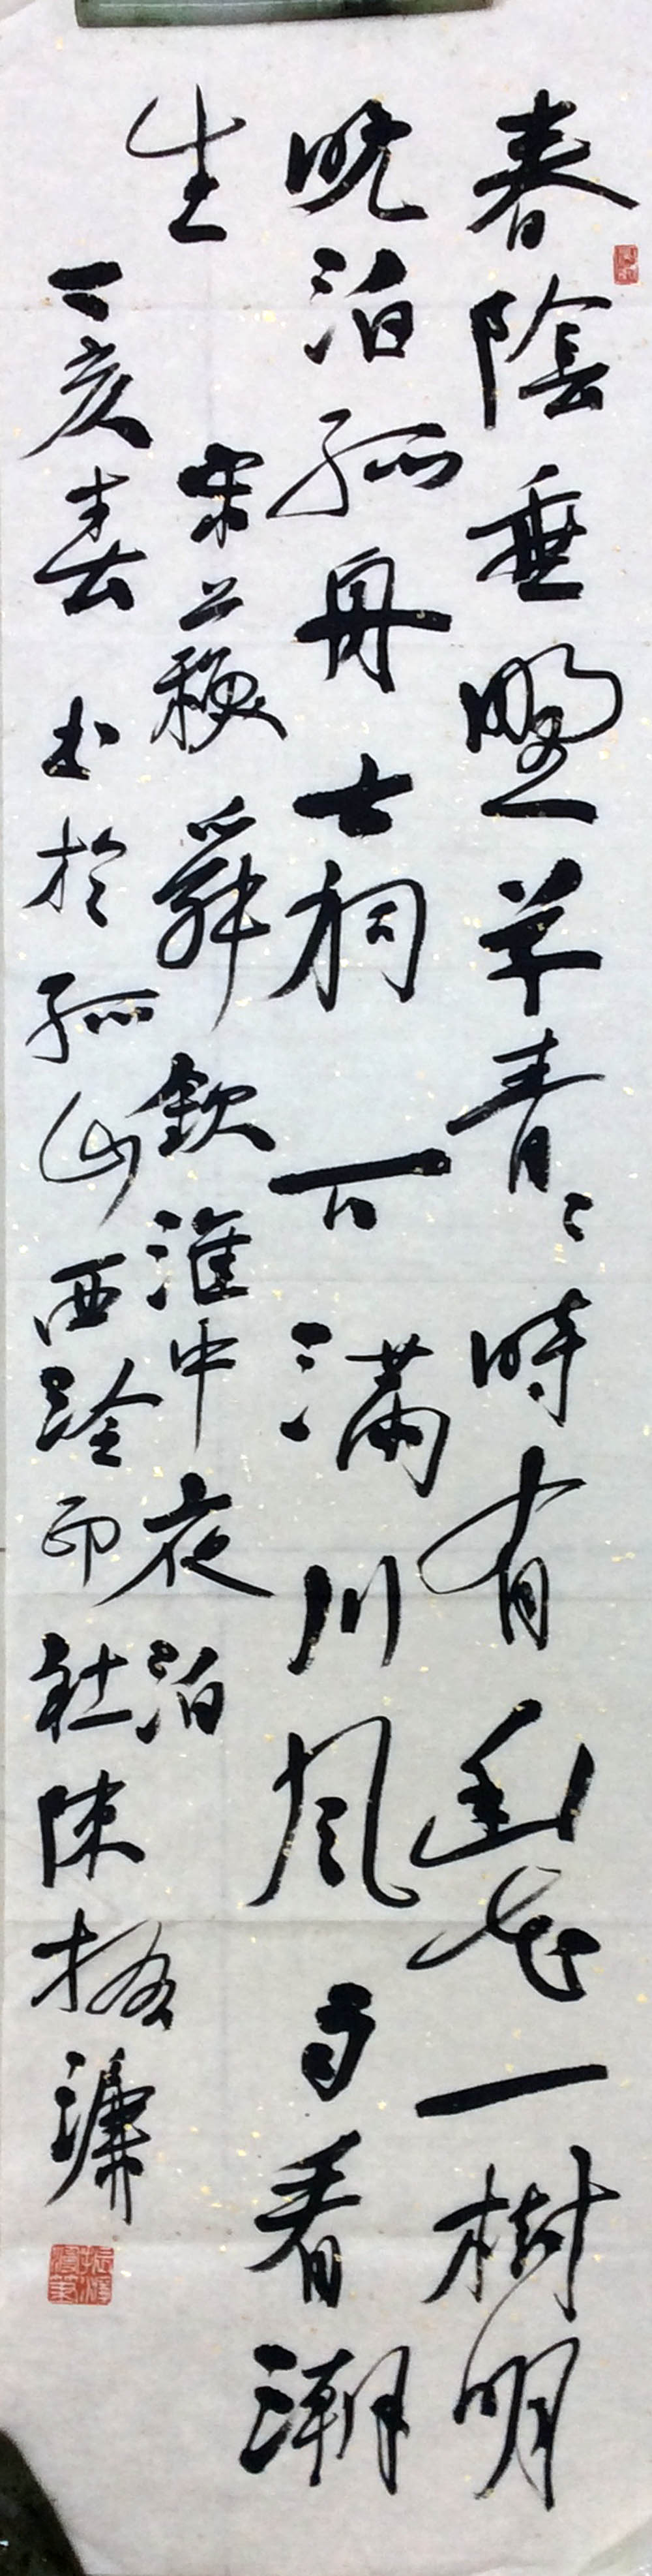 春陰垂野草青〻時有幽花一樹明
晚泊孤舟古祠下滿川風雨看潮
生
宋蘇舜欽淮中夜泊
丁亥春書於孤山西泠印社陳振濂